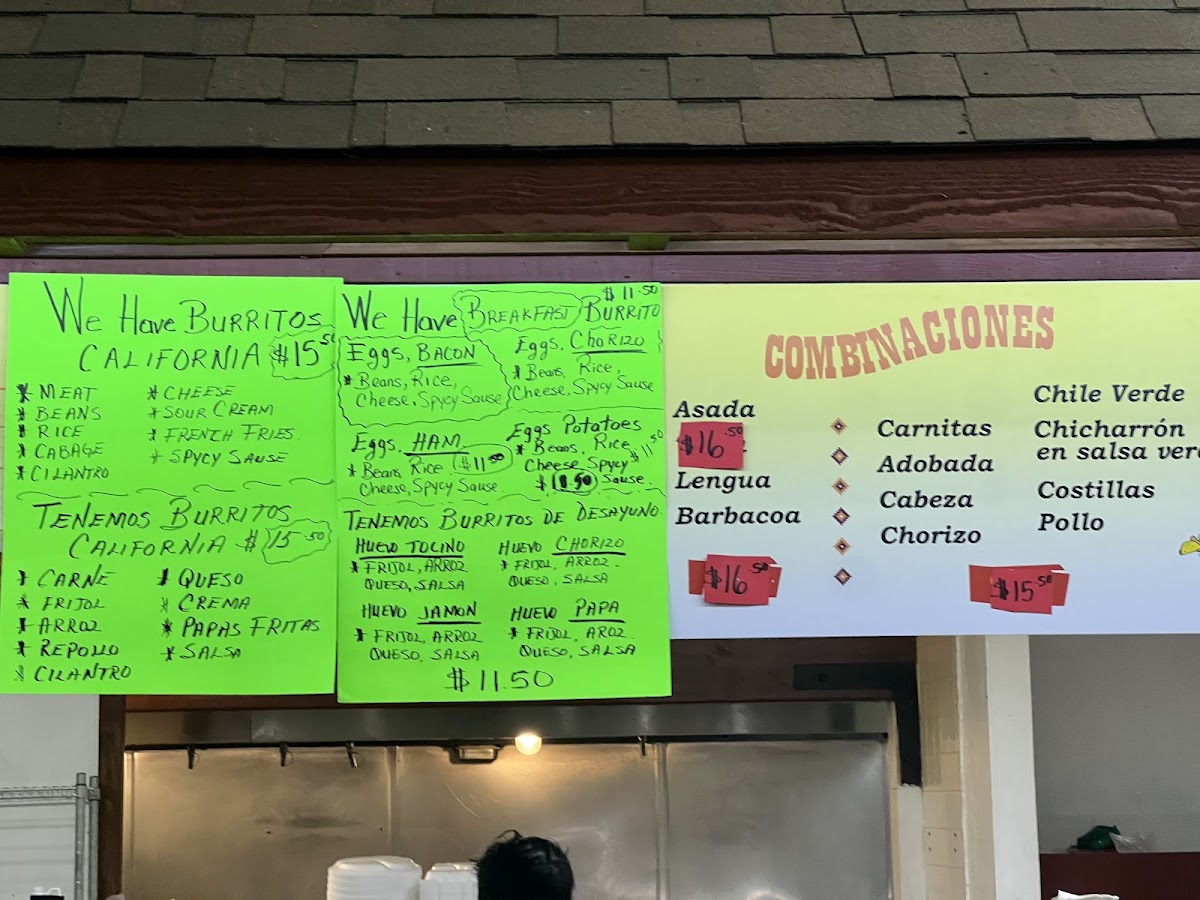 We Have BURRITOS
CALIFORNIA $15.50
* MEAT
* BEANS
* RICE
* CABAGE
* CILANTRO
* CHEESE
* SOUR CREAM
* FRENCH FRIES.
* SPYCY SAUSE
TENEMOS BURRITOS
CALIFORNIA $15.50
* CARNE
* FRIJOL
* ARROZ
* REPOLLO
* CILANTRO
* QUESO
* CREMA
* PAPAS FRITAS
* SALSA
$11.50
We Have BREAKFAST BURRITO
Eggs, BACON
* Beans, Rice,
Cheese, Spycy Sause
Eggs. CHORIZO
* Beans, Rice,
Cheese, Spycy Sause
Eggs. HAM
* Beans, Rice $11.50
Cheese, Spycy Sause
Eggs Potatoes
* Beans, Rice $11.50
Cheese Spycy
$11.50 Sause.
TENEMOS BURRITOS DE DESAYUNO.
HUEVO TOCINO
* FRIJOL, ARROZ
QUESO, SALSA
HUEVO CHORIZO
* FRIJOL, ARROZ.
QUESO, SALSA
HUEVO JAMON
* FRIJOL, ARROZ
QUESO, SALSA
HUEVO PAPA
* FRIJOL, AROZ.
QUESO, SALSA
$11.50
COMBINACIONES
Asada
$16.50
Lengua
Barbacoa
$16.50
Carnitas
Adobada
Cabeza
Chorizo
Chile Verde
Chicharrón
en salsa
Costillas
Pollo
$15.50